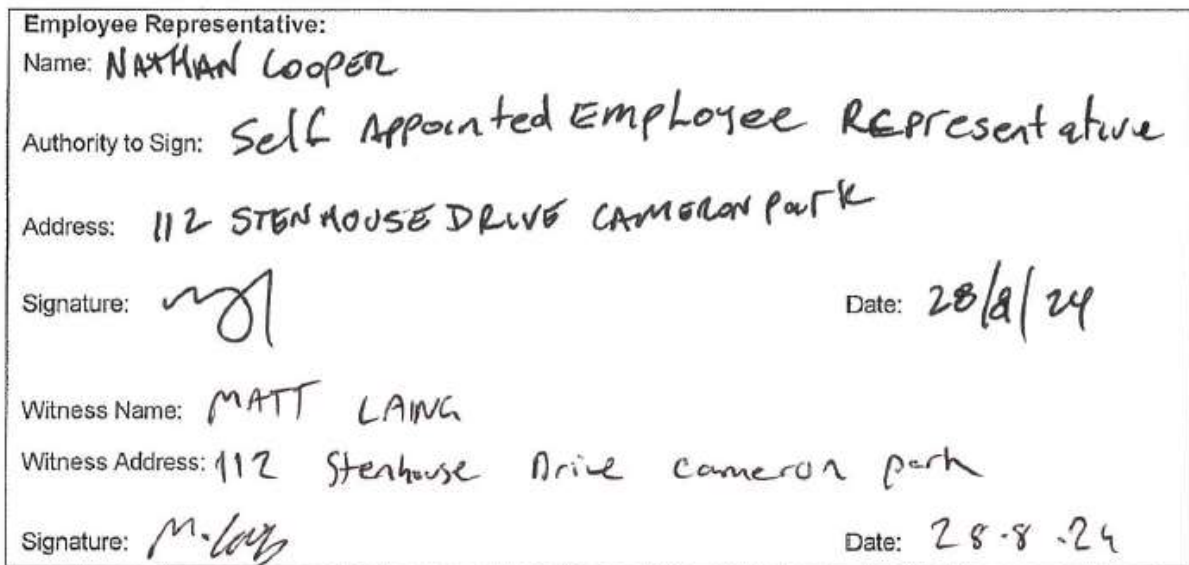 Employee Representative:
Name: NATHAN COOPER
Authority to Sign: Self Appointed Employee Representative
Address: 112 STENHOUSE DRIVE CAMERON Park
Signature: Date: 28/8/24
Witness Name: MATT LAING
Witness Address: 112 Stenhouse Drive Cameron park
Signature: Date: 28.8.24